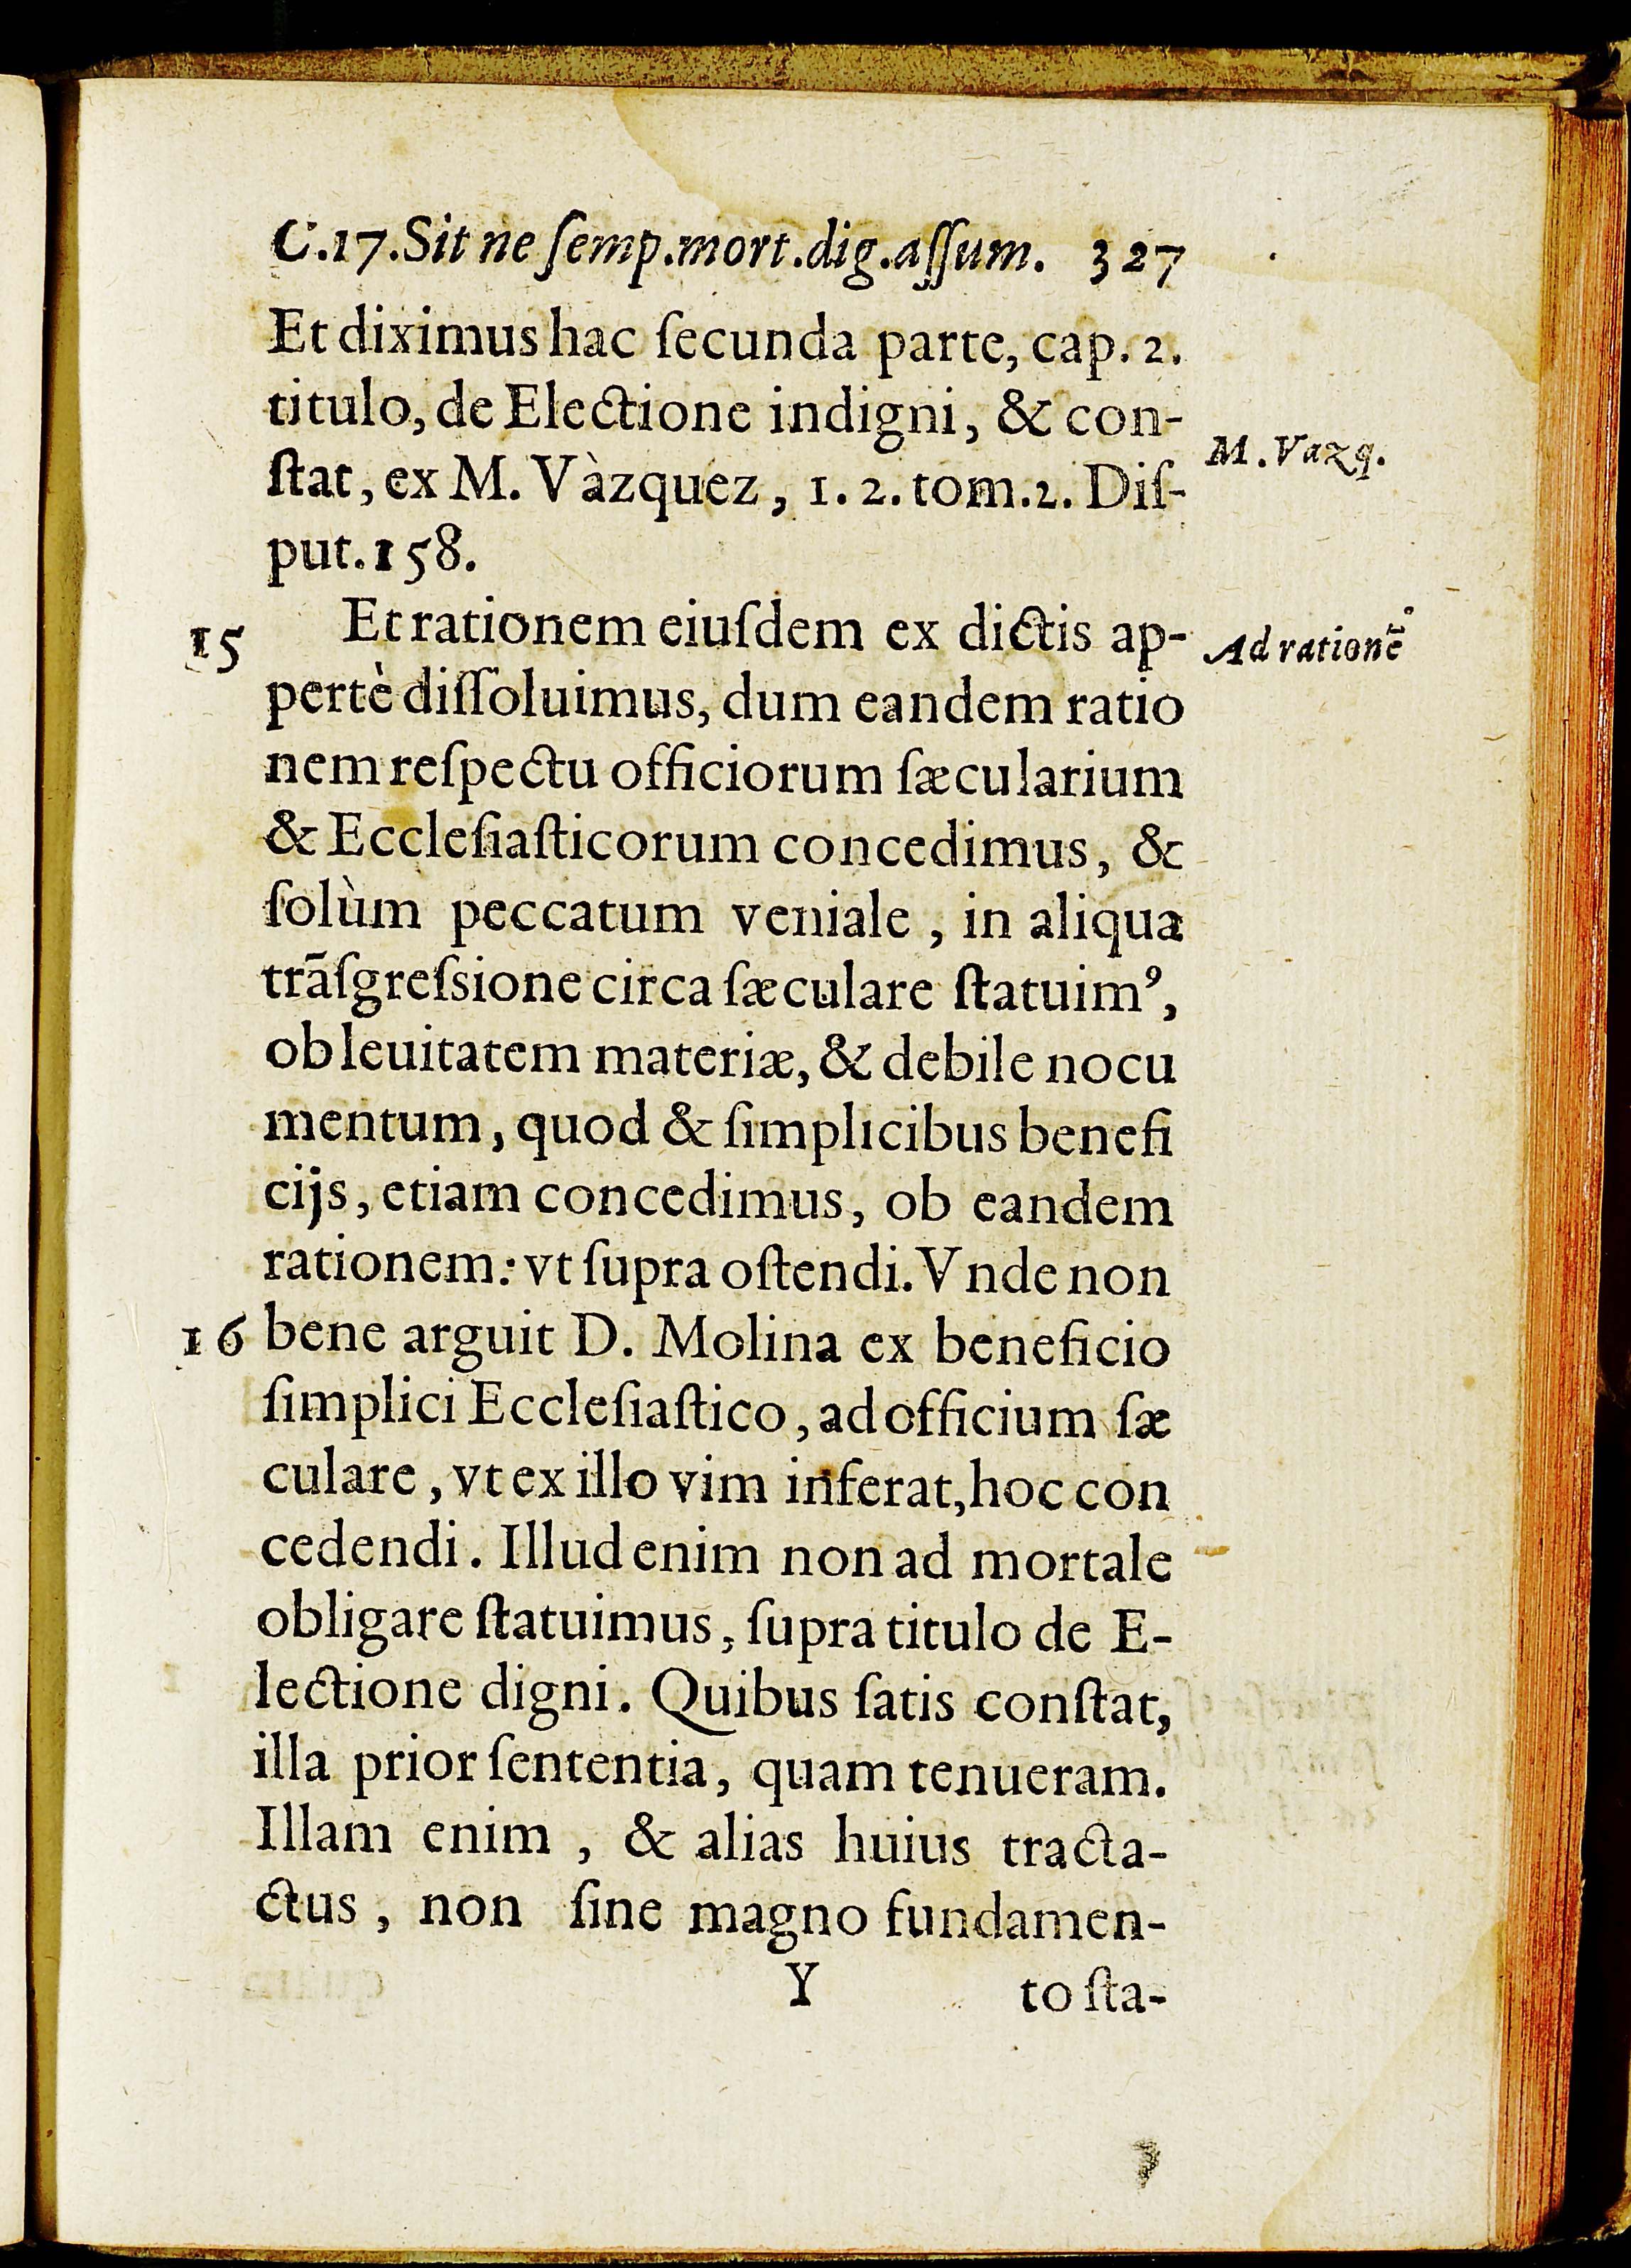 C.17.Sit ne ſemp.mort.dig.aſſum. 327
Et diximus hac ſecunda parte, cap. 2.
titulo, de Electione indigni, & con-
ſtat, ex M. Vàzquez, 1. 2. tom.2. Diſ-
M. Vazq.
put. 158.
15 Et rationem eiuſdem ex dictis ap-
Ad rationẽ
pertè diſſoluimus, dum eandem ratio
nem reſpectu officiorum ſæcularium
& Eccleſiaſticorum concedimus, &
ſolùm peccatum veniale, in aliqua
trãſgreſsione circa ſæculare ſtatuimꝰ,
ob leuitatem materiæ, & debile nocu
mentum, quod & ſimplicibus benefi
cijs, etiam concedimus, ob eandem
rationem: vt ſupra oſtendi. Vnde non
16 bene arguit D. Molina ex beneficio
ſimplici Eccleſiaſtico, ad officium ſæ
culare, vt ex illo vim inferat, hoc con
cedendi. Illud enim non ad mortale
obligare ſtatuimus, ſupra titulo de E-
lectione digni. Quibus ſatis conſtat,
illa prior ſententia, quam tenueram.
Illam enim, & alias huius tracta-
ctus, non ſine magno fundamen-
Y to ſta-